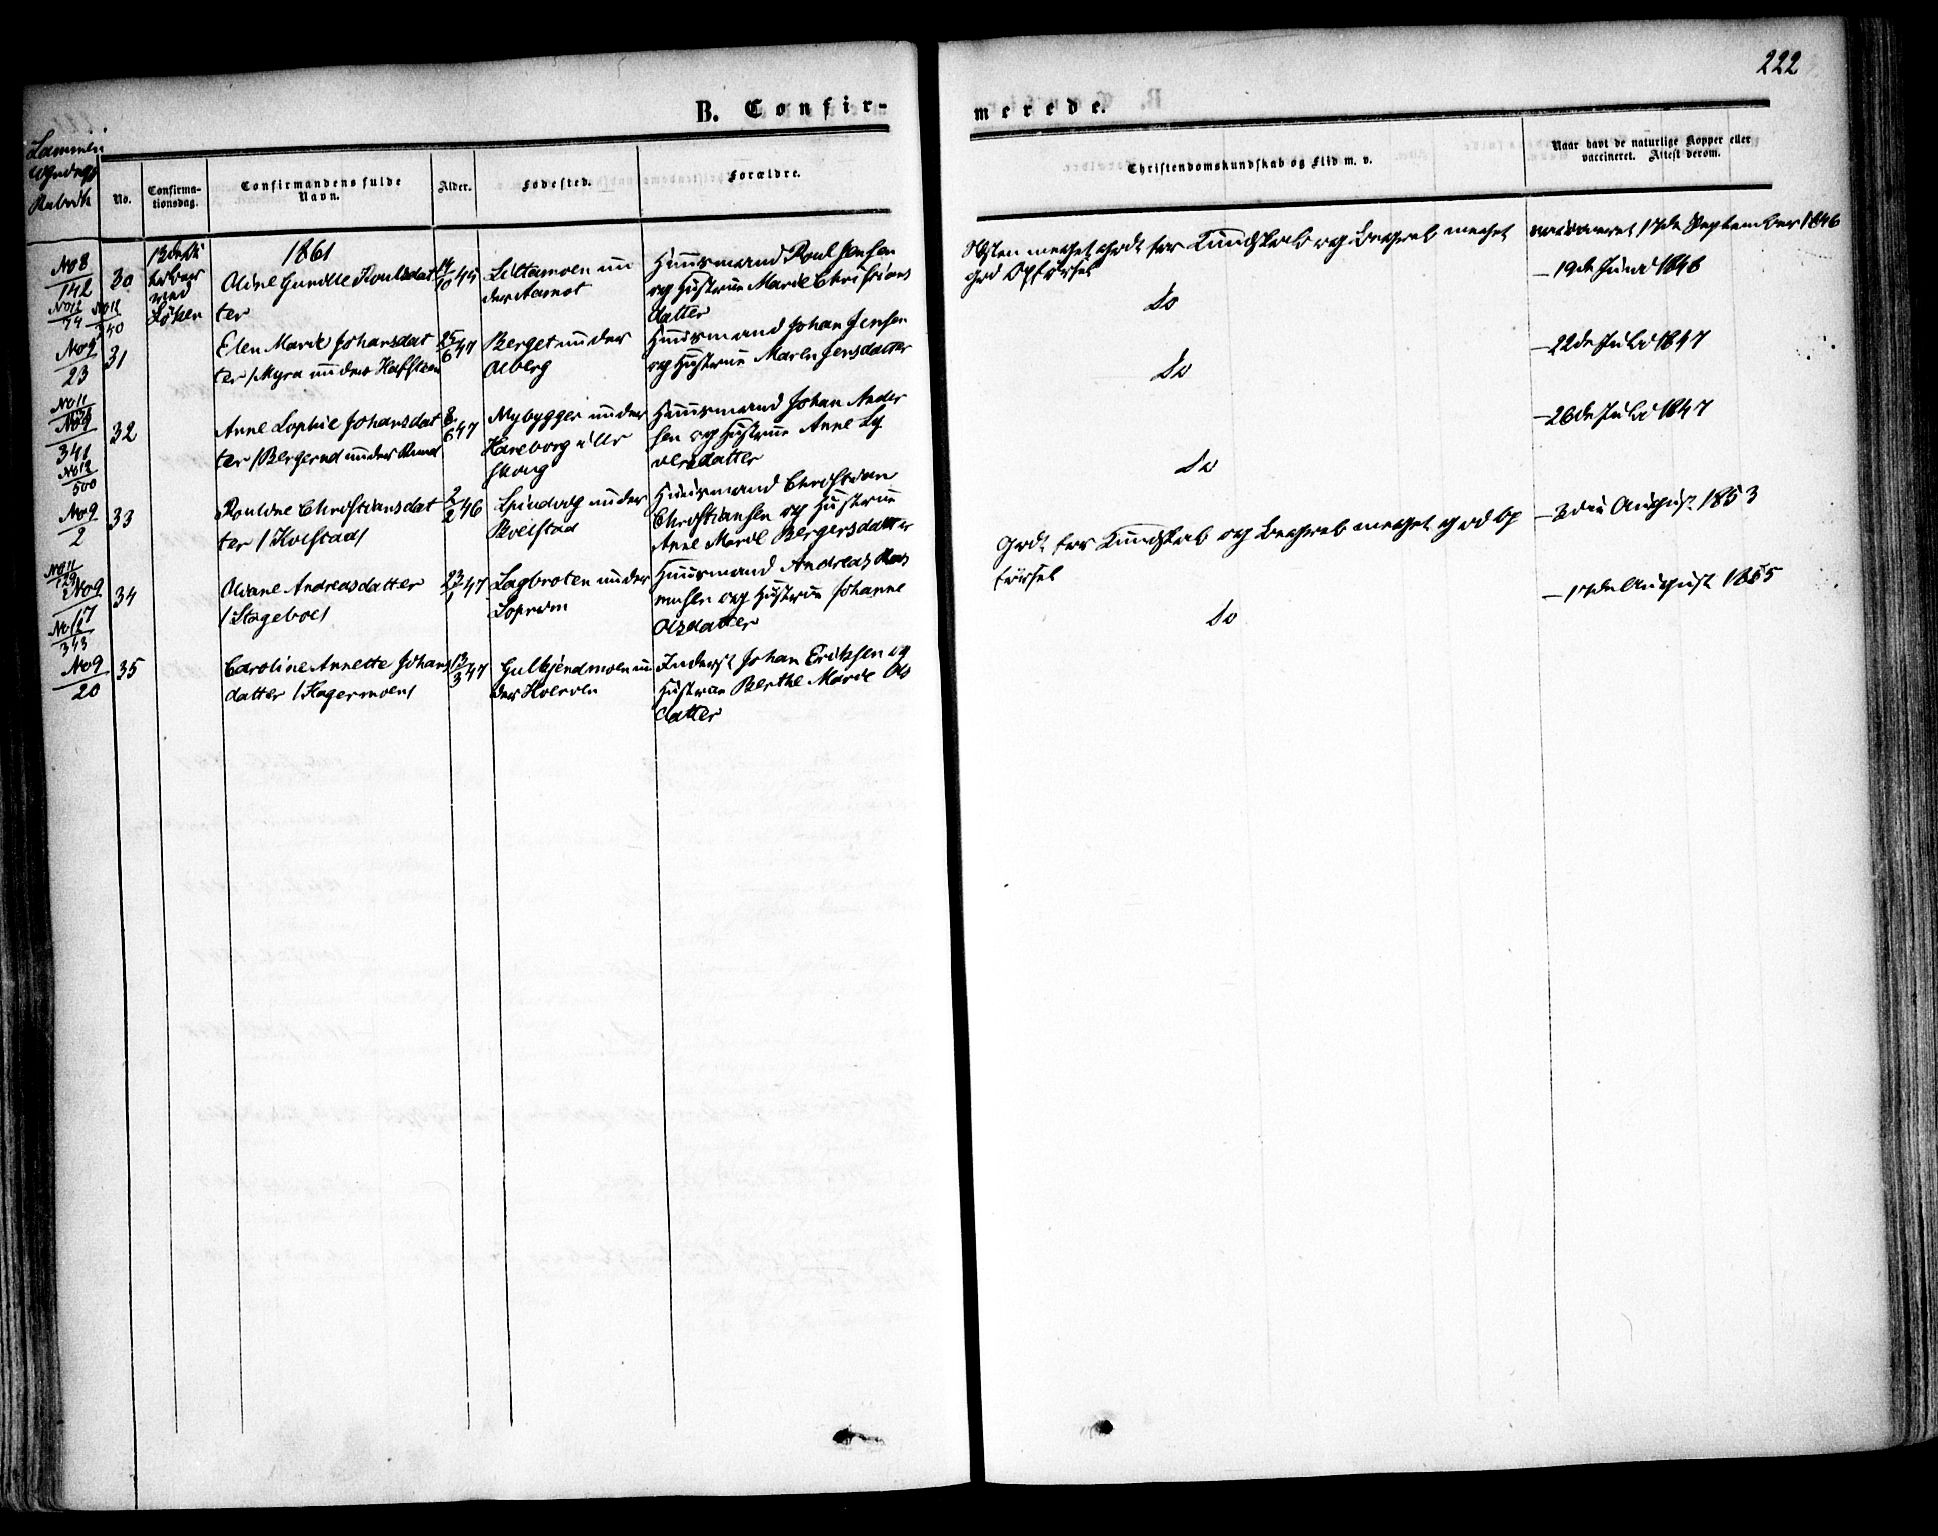 222
B. Confir-
merede.
No.
Confirma-
tionsdag.
Confirmandens fulde
Navn.
Alder.
Fødested.
Forældre.
Christendomskundskab og Flid m. v.
Naar havt de naturlige Kopper eller
vaccineret. Attest derom.
1861
No 8
142
30
Oline Gunilde Poulsdat
ter
14/10 45
Lilleamoen un
der Aamot
Huusmand Poul Jensen
og Hustrue Marie Christians
datter
Næsten meget Godt for Kundskab og Begreb meget
god Opførsel
vaccineret 17de September 1846
No 9
23
31
Elen Marie Johansdat
ter / Myra under Hafsteen
25/6 47
Berget under
Olberg
Huusmand Johan Jensen
og Hustrue Maren Jensdatter
Do
– 19de Juni 1848
No 11
341
32
Anne Sophie Johansdat
ter / Bergerud under Rund
8/6 47
Nybygger under
Huusmand Johan Ander
sen og Hustrue Anne Sy
versdatter
Do
– 22de Juli 1847
No 12
500
No 9
2
33
Pouline Christiansdat
ter / Kolstad /
2/2 46
under
Huusmand Christian
Christiansen og Hustrue
Anne Marie Bergersdatter
Do
– 26de Juli 1847
No 11
129
No 9
17
34
Oliane Andreasdatter
/ Stageboe /
23/1 47
Lagbroten under
Huusmand Andreas Ras
musen og Hustrue Johanne
Olsdatter
Godt for Kundskab og Begreb meget god Op
førsel
– 3die August 1853
No 12
343
No 9
20
35
Caroline Annette Johans
datter / Hagermoen /
13/3 47
Gulkjendmoen un
der
Inderst Johan Eriksen og
Hustrue Berthe Marie Ols
datter
Do
– 17de August 1855